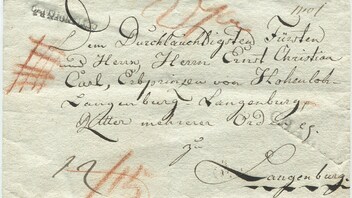 Dem Durchlauchtigsten Fürsten
und Herrn, Herrn Ernst Christian
Carl, Erbprinzen von Hohenloh-
Langenburg Langenburg,
Ritter mehrerer Orden
zu
Langenburg.
12